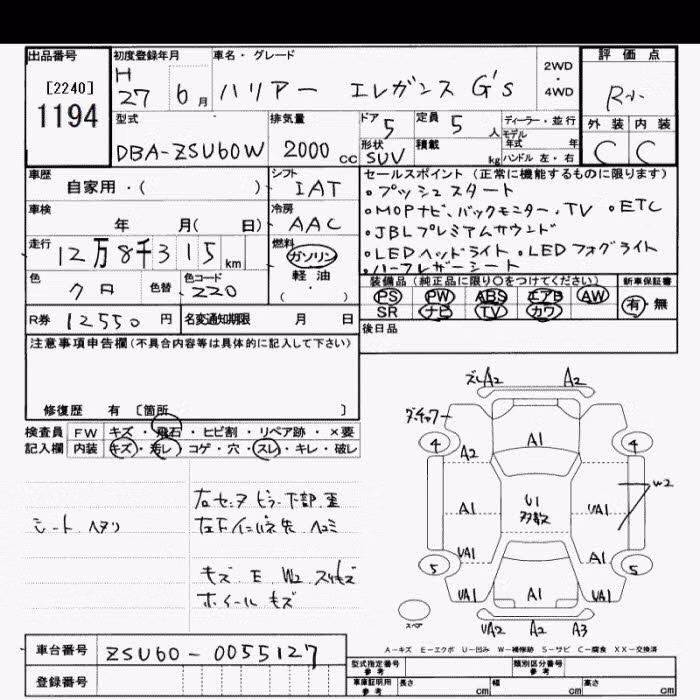 出品番号 初度登録年月 車名・グレード 2WD・4WD 評価点
[2240]
1194
H 27 6月 ハリアー エレガンス G's R
外装 内装
C C
型式 排気量 ドア 定員 ディーラー・並行
DBA-ZSU60W 2000cc 5 5人 モデル年式 年
形状 積載 kg ハンドル 左・右
SUV
車歴 シフト セールスポイント (正常に機能するものに限ります)
自家用・( ) IAT ・プッシュスタート
車検 冷房 ・MOPナビ、バックモニター・TV ・ETC
年 月( 日) AAC ・JBLプレミアムサウンド
走行 燃料 ・LEDヘッドライト・LEDフォグライト
12万8千315km ガソリン ・ハーフレザーシート
軽油
( ・ )
色 色替 色コード 装備品 (純正品に限り○をつけてください) 新車保証書
クロ 220 PS PW ABS エアB AW 有・無
SR ナビ TV カワ
R券 12550円 名変通知期限 月 日 後日品
注意事項申告欄 (不具合内容等は具体的に記入して下さい)
修復歴 有 〔箇所 〕
検査員 FW キズ・飛石・ヒビ割・リペア跡・×要
記入欄 内装 キズ・汚レ・コゲ・穴・スレ・キレ・破レ
右センタピラー下部
シート ヘタリ
キズ E W2 スリキズ
ホイールキズ
ズレA2 A2
4 A1 4
A2
A1 U1多数 UA1 W2
UA1 A1
5 5
UA1 A1 UA1
スペア UA2 A2 A3
A-キズ E-エクボ U-凹み W-補修跡 S-サビ C-腐食 XX-交換済
車台番号 ZSU60-0055127
登録番号
型式指定番号 参考 類別区分番号 参考
車庫証明用 参考 長さ cm 幅 cm 高さ cm